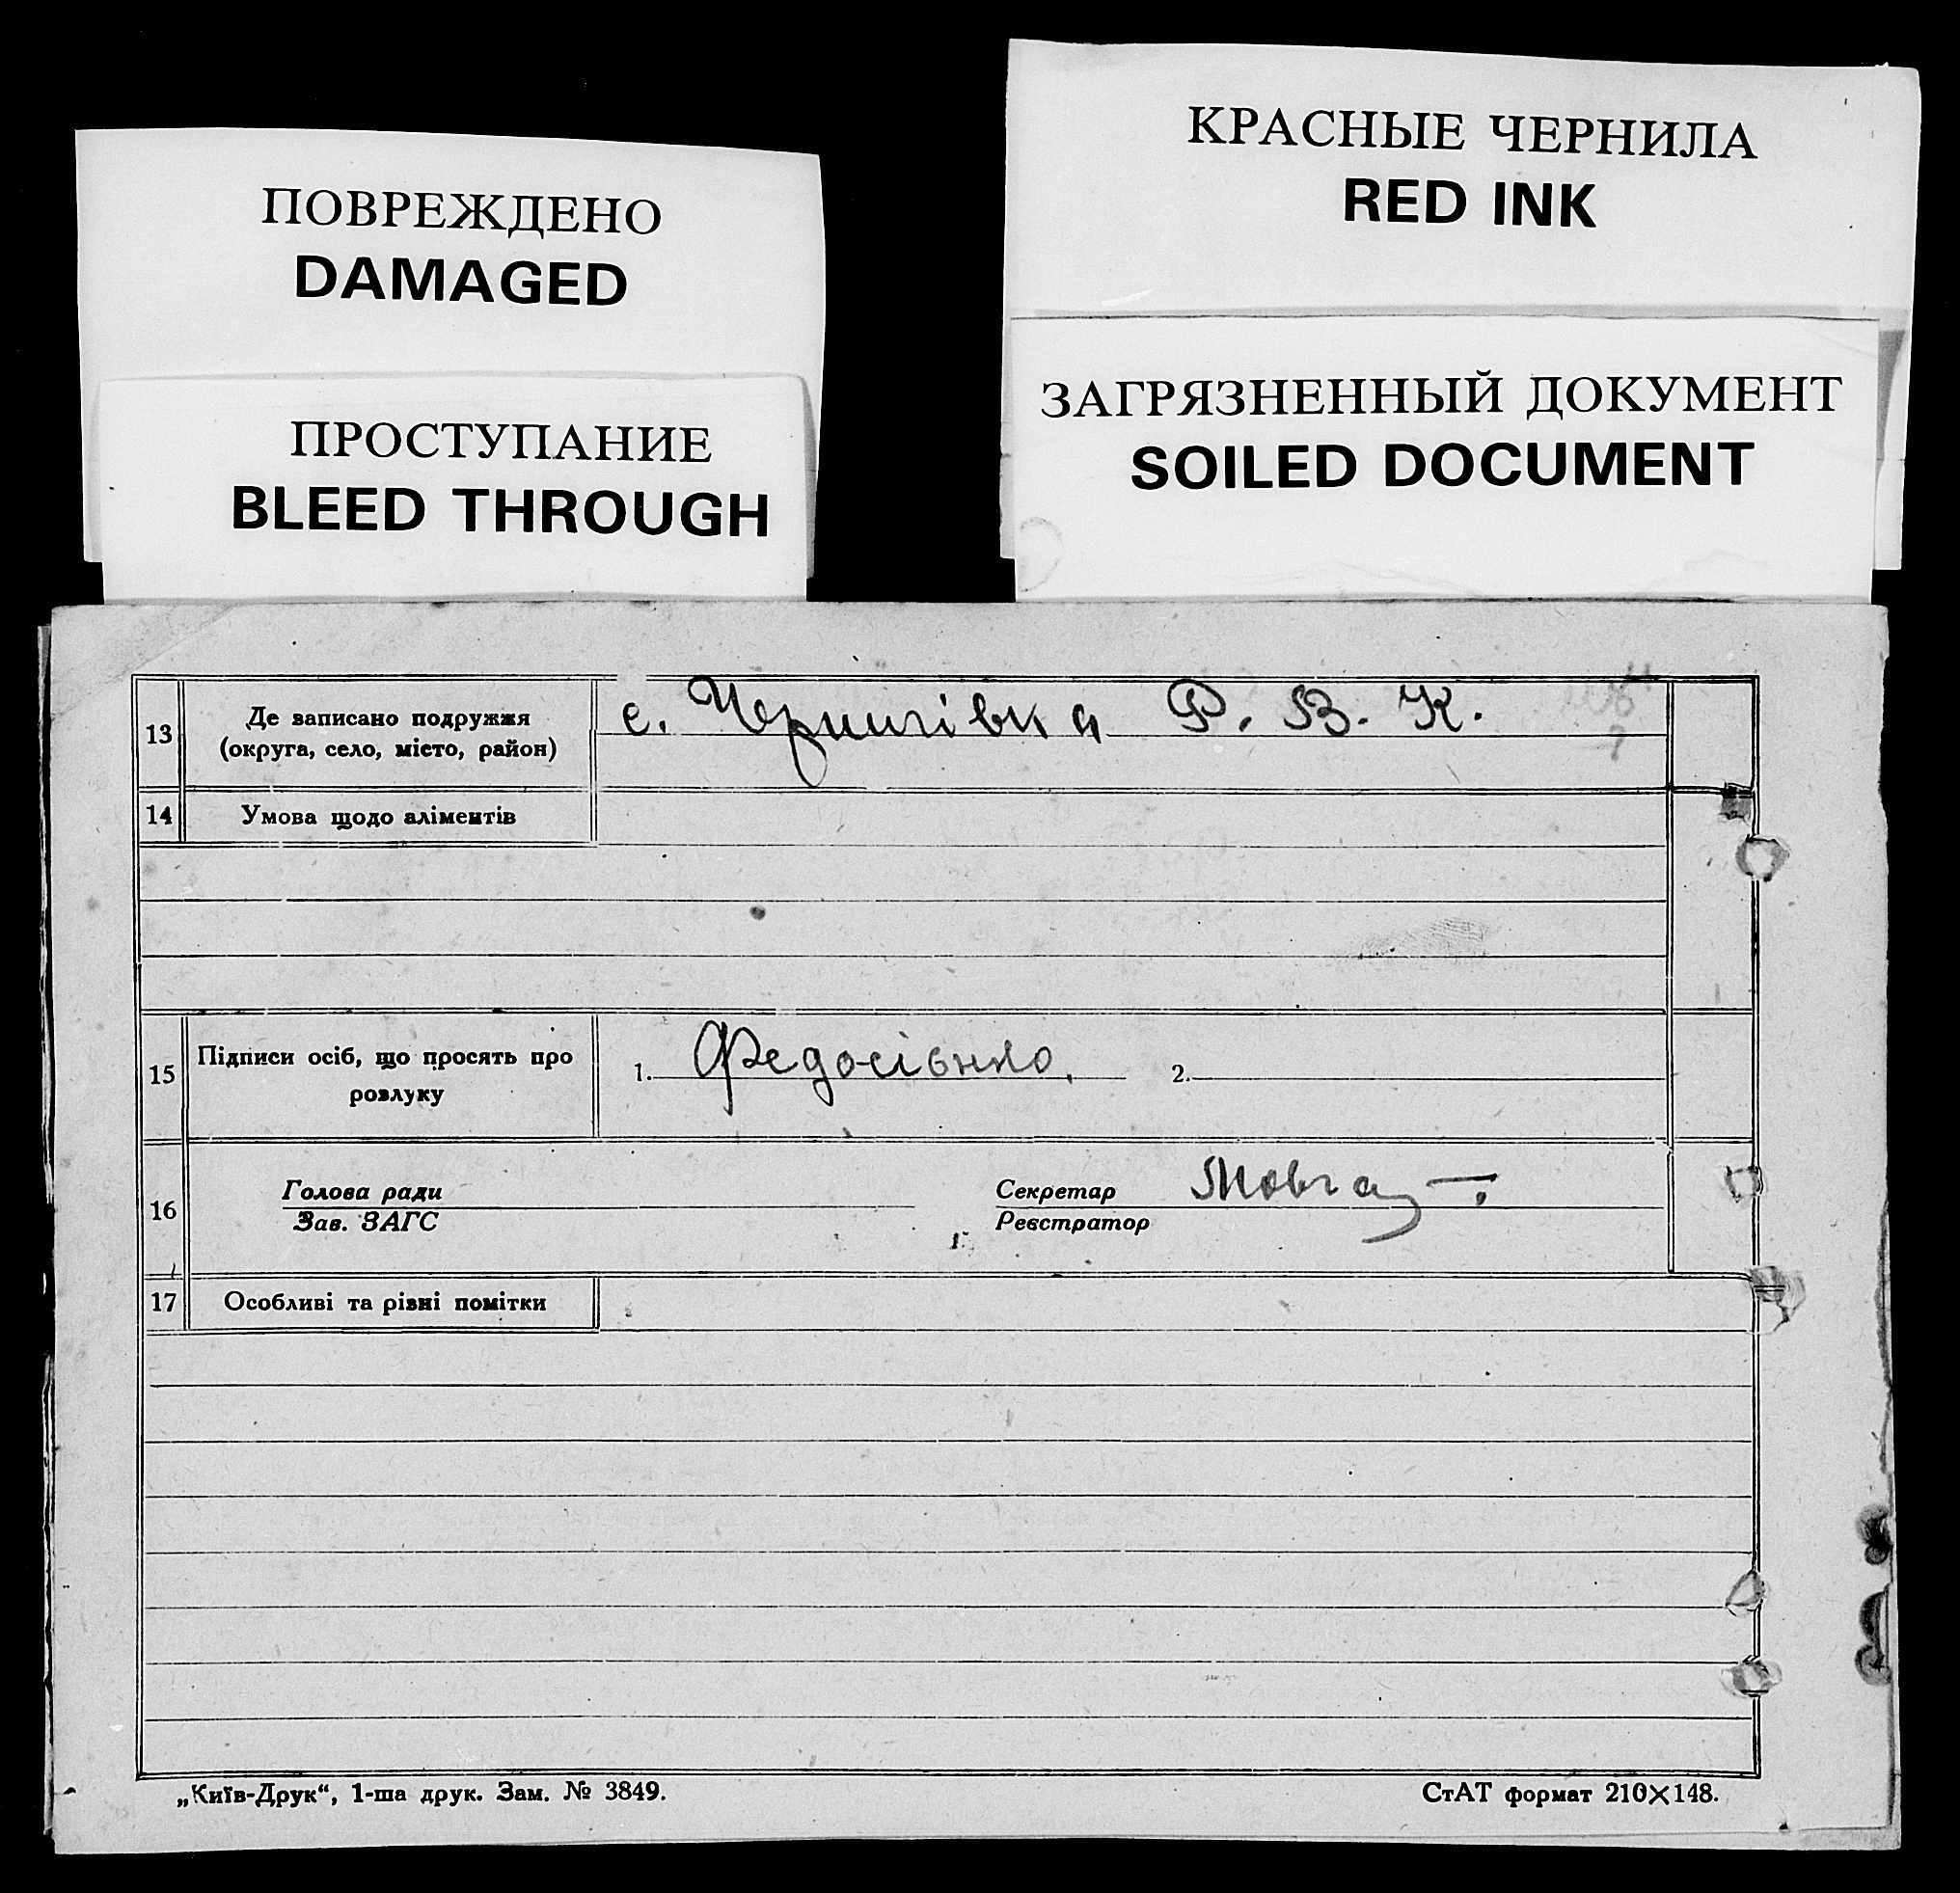 ПОВРЕЖДЕНО
DAMAGED
ПРОСТУПАНИЕ
BLEED THROUGH
КРАСНЫЕ ЧЕРНИЛА
RED INK
ЗАГРЯЗНЕННЫЙ ДОКУМЕНТ
SOILED DOCUMENT
13 Де записано подружжя
(округа, село, місто, район)
с. Чернигівка Р. В. К.
14 Умова щодо аліментів
15 Підписи осіб, що просять про
розлуку
1. 2.
16 Голова ради
Зав. ЗАГС
Секретар
Реєстратор
17 Особливі та різні помітки
„Київ-Друк“, 1-ша друк. Зам. № 3849.
СтАТ формат 210×148.